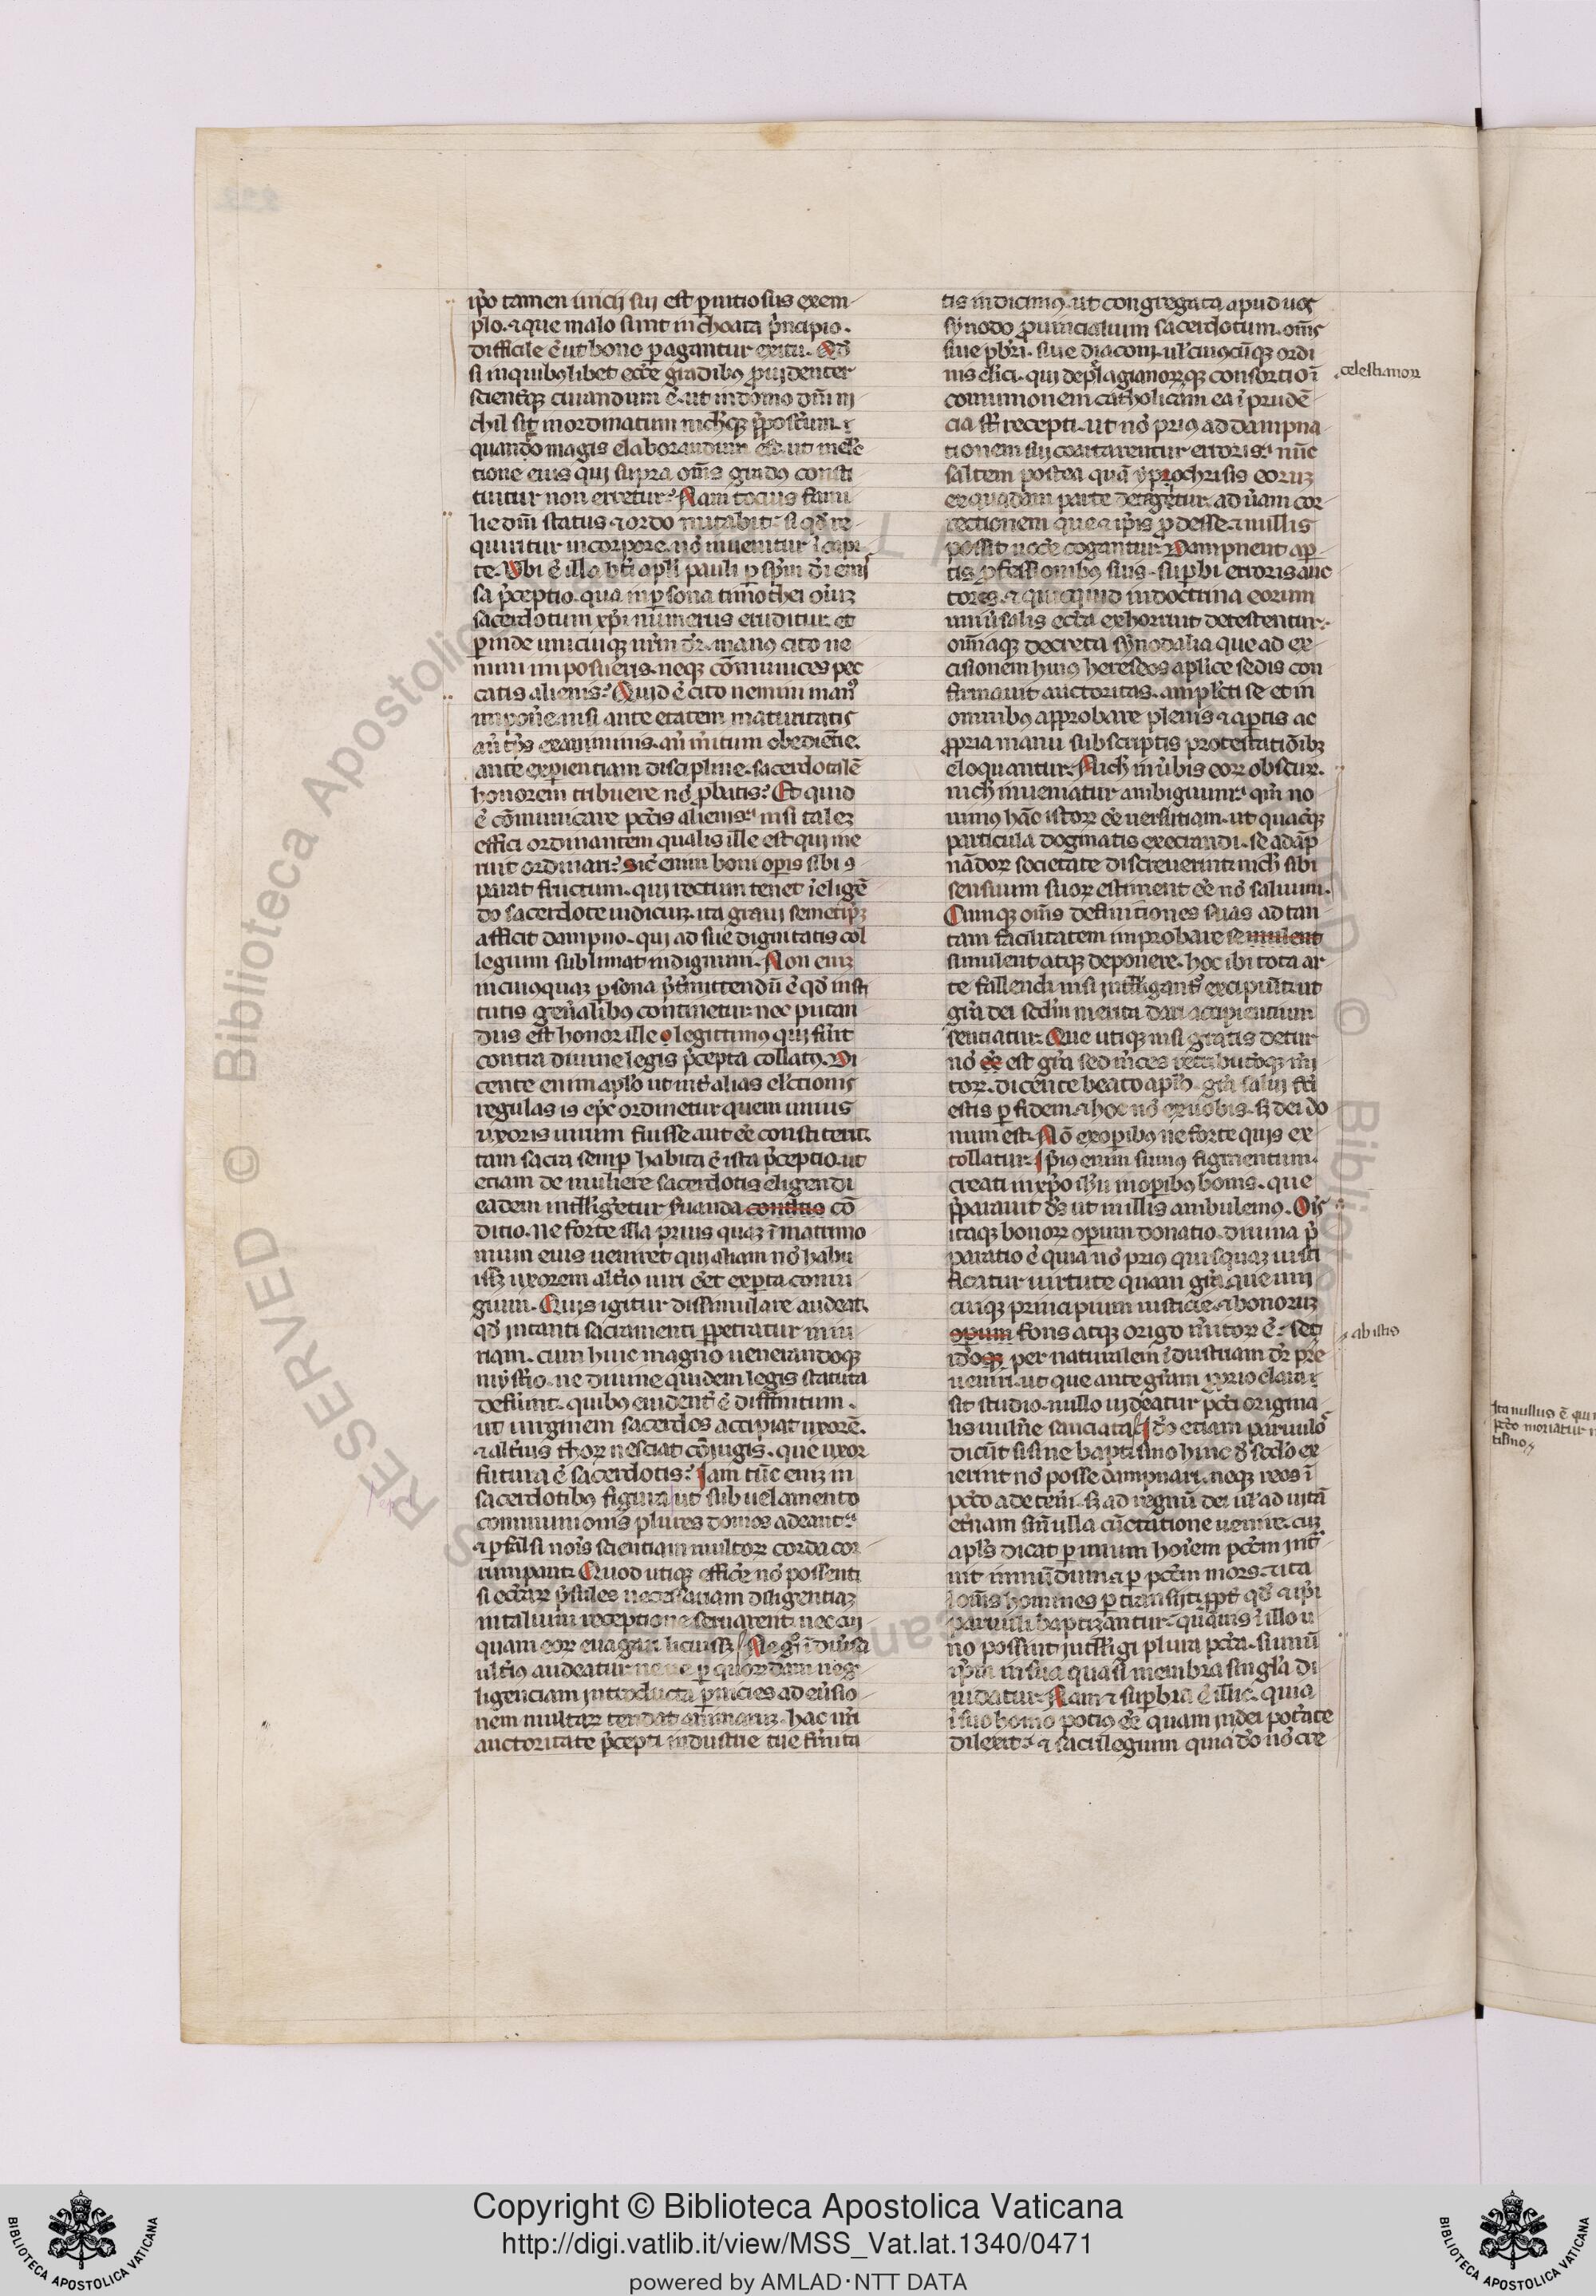 ip̄o tamen inicij sui est pernitiosus exem-
plo. ⁊ que malo sunt inchoata p̄ncipio.
difficile ē ut bono peragantur exitu. Qd̕
si in quibuslibet ecc̄e gradibus prouidenter
scienterqꝫ curandum ē. ut in domo dn̄i ni
chil sit inordinatum nichilqꝫ p̄posterum.
quando magis elaborandum est. ut in elec
tione eius qui supra om̄s gradus consti
tuitur non erretur? Nam tocius fami
lie dn̄i status ⁊ ordo nutabit. si qd̕ re
quiritur in corpore. nō inuenitur ī capi
te. Vbi ē illa bt̄i apl̄i pauli p sp̄m dei emis
sa p̄ceptio. qua in psona timothei oīuꝫ
sacerdotum xp̄i numerus eruditur. et
perinde unicuiqꝫ nrm̄ dr̄. manus cito ne
mini imposueris. neqꝫ cōmunices pec
catis alienis? Quid ē cito nemini man9
imponere. nisi ante etatem maturitatis
an̄ tp̄s examinis. an̄ meritum obediencie.
ante experientiam discipline. sacerdotalē
honorem tribuere nō probatis? Et quid
ē cōmunicare pctis alienis? nisi talem
effici ordinantem qualis ille est qui me
ruit ordinari? Sic̄ enim boni operis sibi 9
parat fructum. qui rectum tenet ī eligē
do sacerdote iudiciuꝫ. ita graui semetip̄ꝫ
afficit dampno. qui ad sue dignitatis col
legium sublimat indignum. Non eniꝫ
in cuiusquaꝫ psona p̄termittendū ē qd̕ insti
tutis gen̄alibus continetur. nec putan
dus est honor ille legittimus qui fuit
contra diuine legis p̄cepta collatus. Di
cente enim apl̄o ut int̄ alias electionis
regulas is ep̄c ordinetur quem unius
uxoris uirum fuisse aut ee constiterit.
tam sacra semp habita ē ista p̄ceptio. ut
etiam de muliere sacerdotis eligendi
eadem intelligeretur seruanda constitio cō
ditio. ne forte illa prius quaꝫ ī matrimo
nium eius ueniret qui aliam nō habu
isseꝫ uxorem alterius uiri eēt experta coniu
gium. Quis igitur dissimulare audeat.
qd̕ in tanti sacramenti ppetratur iniu
riam. cum huic magno uenerandoqꝫ
mysterio. ne diuine quidem legis statuta
defuerint. quibus euident̄ ē diffinitum.
ut uirginem sacerdos accipiat uxorē.
⁊ alterius thoꝝ nesciat cōiugis. que uxor
futura ē sacerdotis? Iam tūc eniꝫ in
sacerdotibus figura ut sub uelamento
communionis plures domos adeant.
⁊ p falsi nois̄ scientiam multoꝝ corda cor
rumpant. Quod utiqꝫ efficere nō possent.
si eccl̄aꝝ p̄sules necessariam diligentiaꝫ
in talium receptione seruarent. nec cui
quam eoꝝ euagari licuisseꝫ Ne g̊ ī diuersa
ulterius audeatur. neue p quorūdam neg
ligenciam introducta pnicies ad euersio
nem multaꝝ tendat animaruꝫ. hac nr̄i
auctoritate p̄cepti industrie tue fr̄nita
tis indicimus. ut congregata apud uos
synodo prouincialium sacerdotum. om̄s
siue p̄bri. siue diaconi. ul̕ cuiuscūqꝫ ordi
nis cl̄ici. qui de pelagianoꝝqꝫ consortio ī
celestianoꝝ
comunionem catholicam ea ī prudē
cia st̄ recepti. ut nō prius ad dampna
tionem sui coartarentur erroris. nūc
saltem postea quā ypochrisis eoruꝫ
ex quadam parte detegetur. ad ueram cor
rectionem que ⁊ ip̄is prodesse ⁊ nullis
possit nocere cogantur. Dampnent aper
tis professionibus suis. superbi erroris auc
tores. ⁊ quicquid in doctrina eorum
uniuersalis eccl̄a exhorruit detestentur.
omniaqꝫ decreta synodalia que ad ex
cisionem huius hereseos aplice sedis con
firmauit auctoritas. amplecti se et in
omnibus approbare plenis ⁊ apertis ac
propria manu subscriptis protestatiōibꝫ
eloquantur. Nich̄ in uerbis eoꝝ obscur.
nich̄ inueniatur ambiguum. qm̄ no
uimus hāc istoꝝ ee uersutiam. ut quacūqꝫ
particula dogmatis execrandi. se a dāp
nādoꝝ societate discreuerint. nich̄ sibi
sensuum suoꝝ estiment ee nō saluum.
Cumqꝫ om̄s definitiones suas ad tan
tam facilitatem improbare se mulent
simulent atqꝫ deponere. hoc ibi tota ar
te fallendi nisi intelligant̄ excipiūt. ut
gr̄a dei secdm merita dari accipientium
sentiatur. Que utiqꝫ nisi gratis detur
nō ee est gr̄a sed merces retributioqꝫ meri
toꝝ. dicente beato aplo. gr̄a salui facti
estis p fidem. ⁊ hoc nō ex uobis. sꝫ dei do
num est. Nō ex operibus ne forte quis ex
tollatur. Ipsius enim sumus figmentum.
creati in xp̄o ih̄u in operibus bonis. que
p̄parauit ds̄ ut in illis ambulemus. Ois̄
itaqꝫ bonoꝝ operum donatio. diuina p̄
paratio ē. quia nō prius quisquaꝫ iusti
ficatur uirtute quam gr̄a. que uni
cuiqꝫ principium iusticie. ⁊ bonoruꝫ
opum fons atqꝫ origo meritoꝝ ē. Sed
ab istis
id̕oqꝫ per naturalem īdustriam dr̄ pre
ueniri. ut que ante gr̄am proprio clara ī
sit studio. nullo uideatur pcti origina
lis uulnere sauciata Ido etiam paruulos
dicūt si sine baptismo hinc de sclo ex
ierint nō posse dampnari. neqꝫ reos ī
pcto adeterni. sꝫ ad regnū dei ul̕ ad uitā
et̄nam sin̄ ulla cūctatione uenire. cuꝫ
apl̕s dicat p unum hoīem pctm int̄
uit in mūdum ⁊ p pctm mors. ⁊ ita
ī om̄s homines ptransijt. ppt̄ qd̕ ⁊ ip̄i
paruuli baptizantur. quāuis ī illo u
no possint intelligi plura pcta. si unū
ip̄m in sua quasi membra singula di
uidatur. Nam ⁊ supbia ē illic. quia
ī suo homo potius ee quam in dei pot̄ate
dilexit. ⁊ sacrilegium quia do nō cre
Ita nullus ē qui
pcto moriatur
tismo
Copyright © Biblioteca Apostolica Vaticana
http://digi.vatlib.it/view/MSS_Vat.lat.1340/0471
powered by AMLAD·NTT DATA